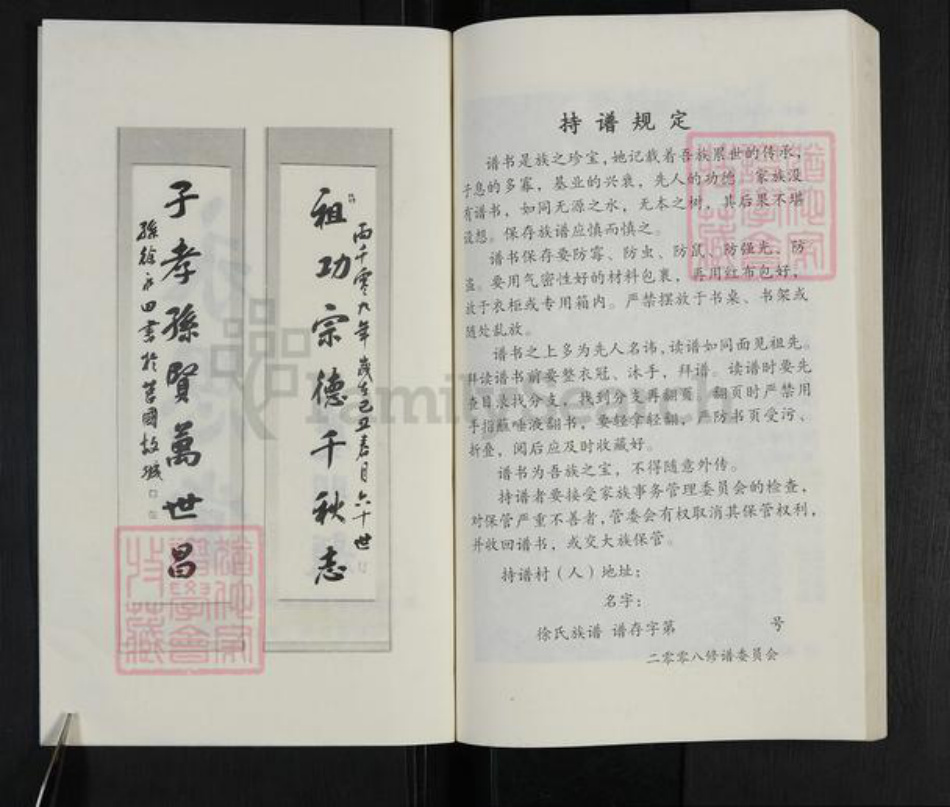 祖功宗德千秋志
两千零九年岁在己丑春月六十世
子孝孫賢萬世昌
孫徐永田書於莒國故城
持谱规定
谱书是族之珍宝，她记载着吾族累世的传承，
子息的多寡，基业的兴衰，先人的功德。家族没
有谱书，如同无源之水，无本之树，其后果不堪
设想。保存族谱应慎而慎之。
谱书保存要防霉、防虫、防鼠、防强光、防
盗。要用气密性好的材料包裹，再用红布包好，
放于衣柜或专用箱内。严禁摆放于书桌、书架或
随处乱放。
谱书之上多为先人名讳，读谱如同面见祖先。
拜读谱书前要整衣冠、沐手，拜谱。读谱时要先
查目录找分支，找到分支再翻页。翻页时严禁用
手指蘸唾液翻书，要轻拿轻翻，严防书页受污、
折叠，阅后应及时收藏好。
谱书为吾族之宝，不得随意外传。
持谱者要接受家族事务管理委员会的检查，
对保管严重不善者，管委会有权取消其保管权利，
并收回谱书，或交大族保管。
持谱村（人）地址：
名字：
徐氏族谱 谱存字第 号
二零零八修谱委员会
FamilySearch